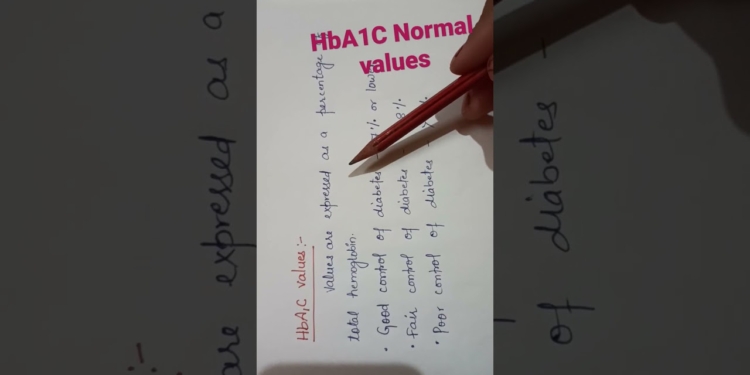 HbA1C Normal
values
HbA1C values:-
Values are expressed as a percentage
total hemoglobin.
• Good control of diabetes - 7% or
• Fair control of diabetes 8%
• Poor control of diabetes -
are expressed as a
of diabetes -